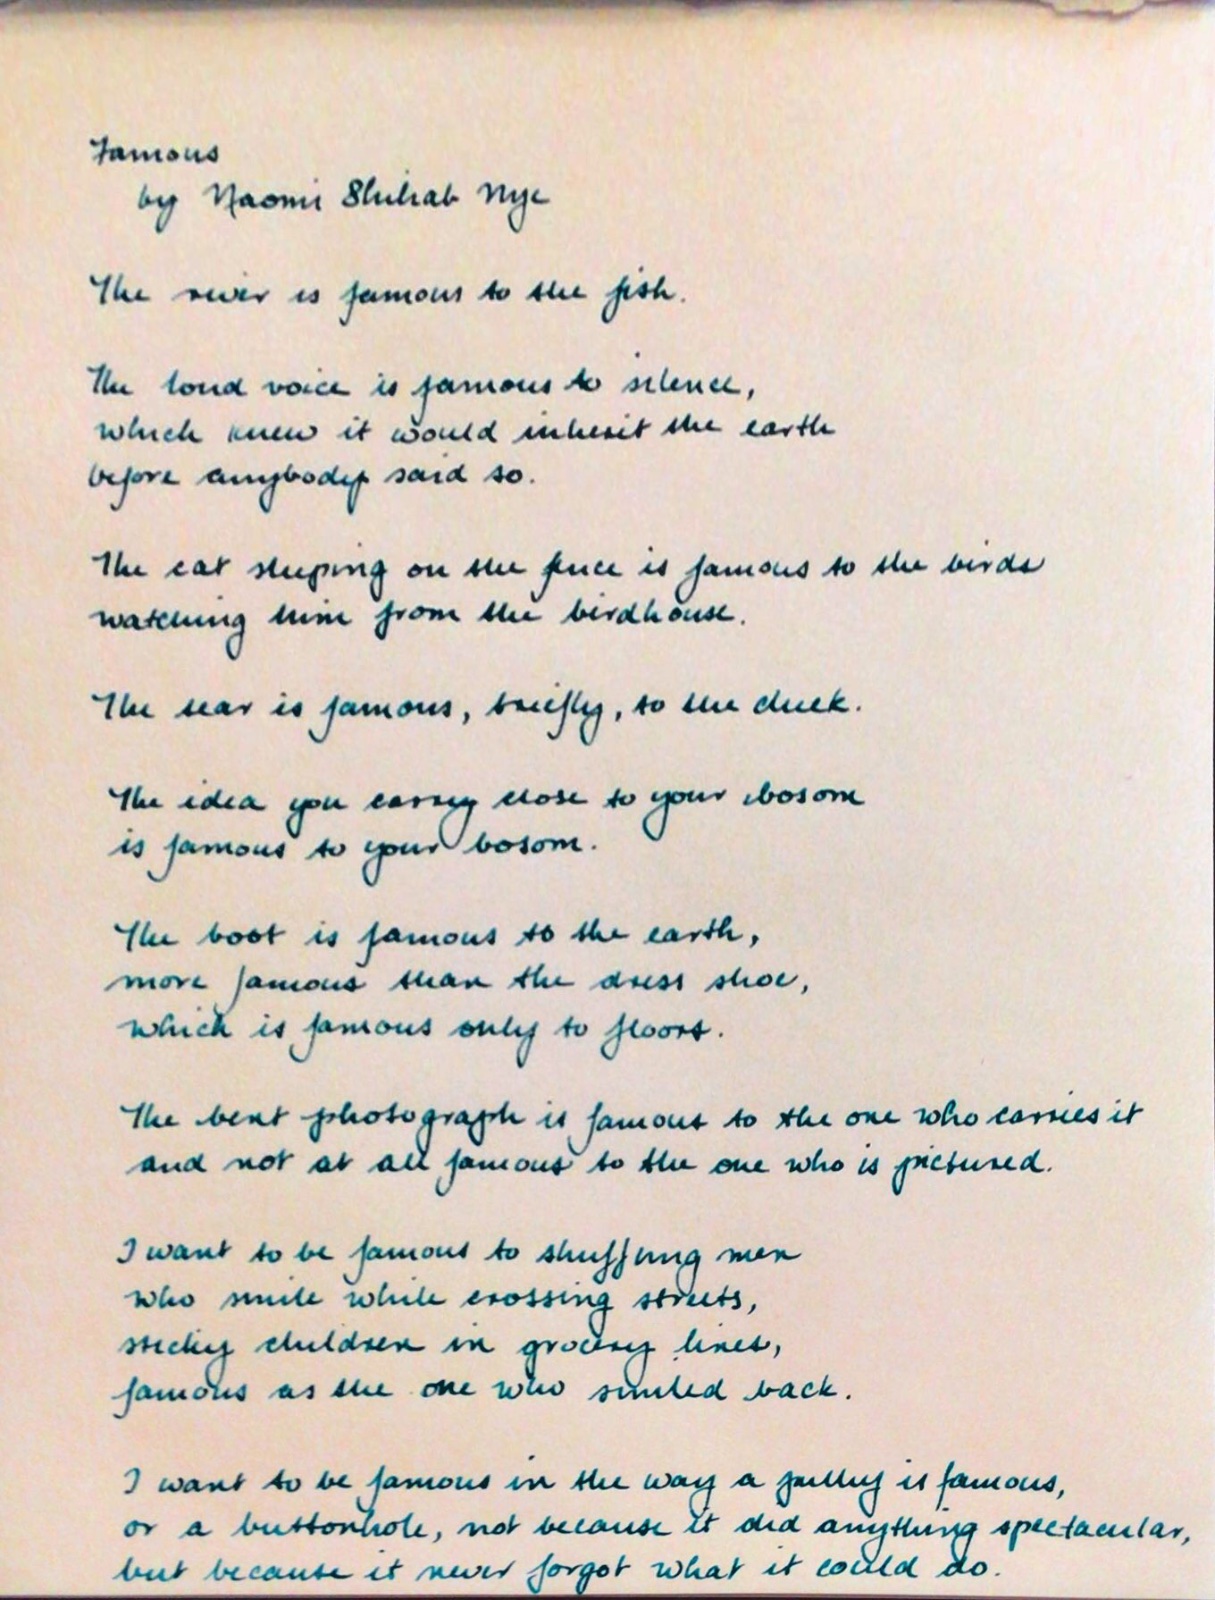 Famous
by Naomi Shihab Nye
The river is famous to the fish.
The loud voice is famous to silence,
which knew it would inherit the earth
before anybody said so.
The cat sleeping on the fence is famous to the birds
watching him from the birdhouse.
The tear is famous, briefly, to the cheek.
The idea you carry close to your bosom
is famous to your bosom.
The boot is famous to the earth,
more famous than the dress shoe,
which is famous only to floors.
The bent photograph is famous to the one who carries it
and not at all famous to the one who is pictured.
I want to be famous to shuffling men
who smile while crossing streets,
sticky children in grocery lines,
famous as the one who smiled back.
I want to be famous in the way a pulley is famous,
or a buttonhole, not because it did anything spectacular,
but because it never forgot what it could do.